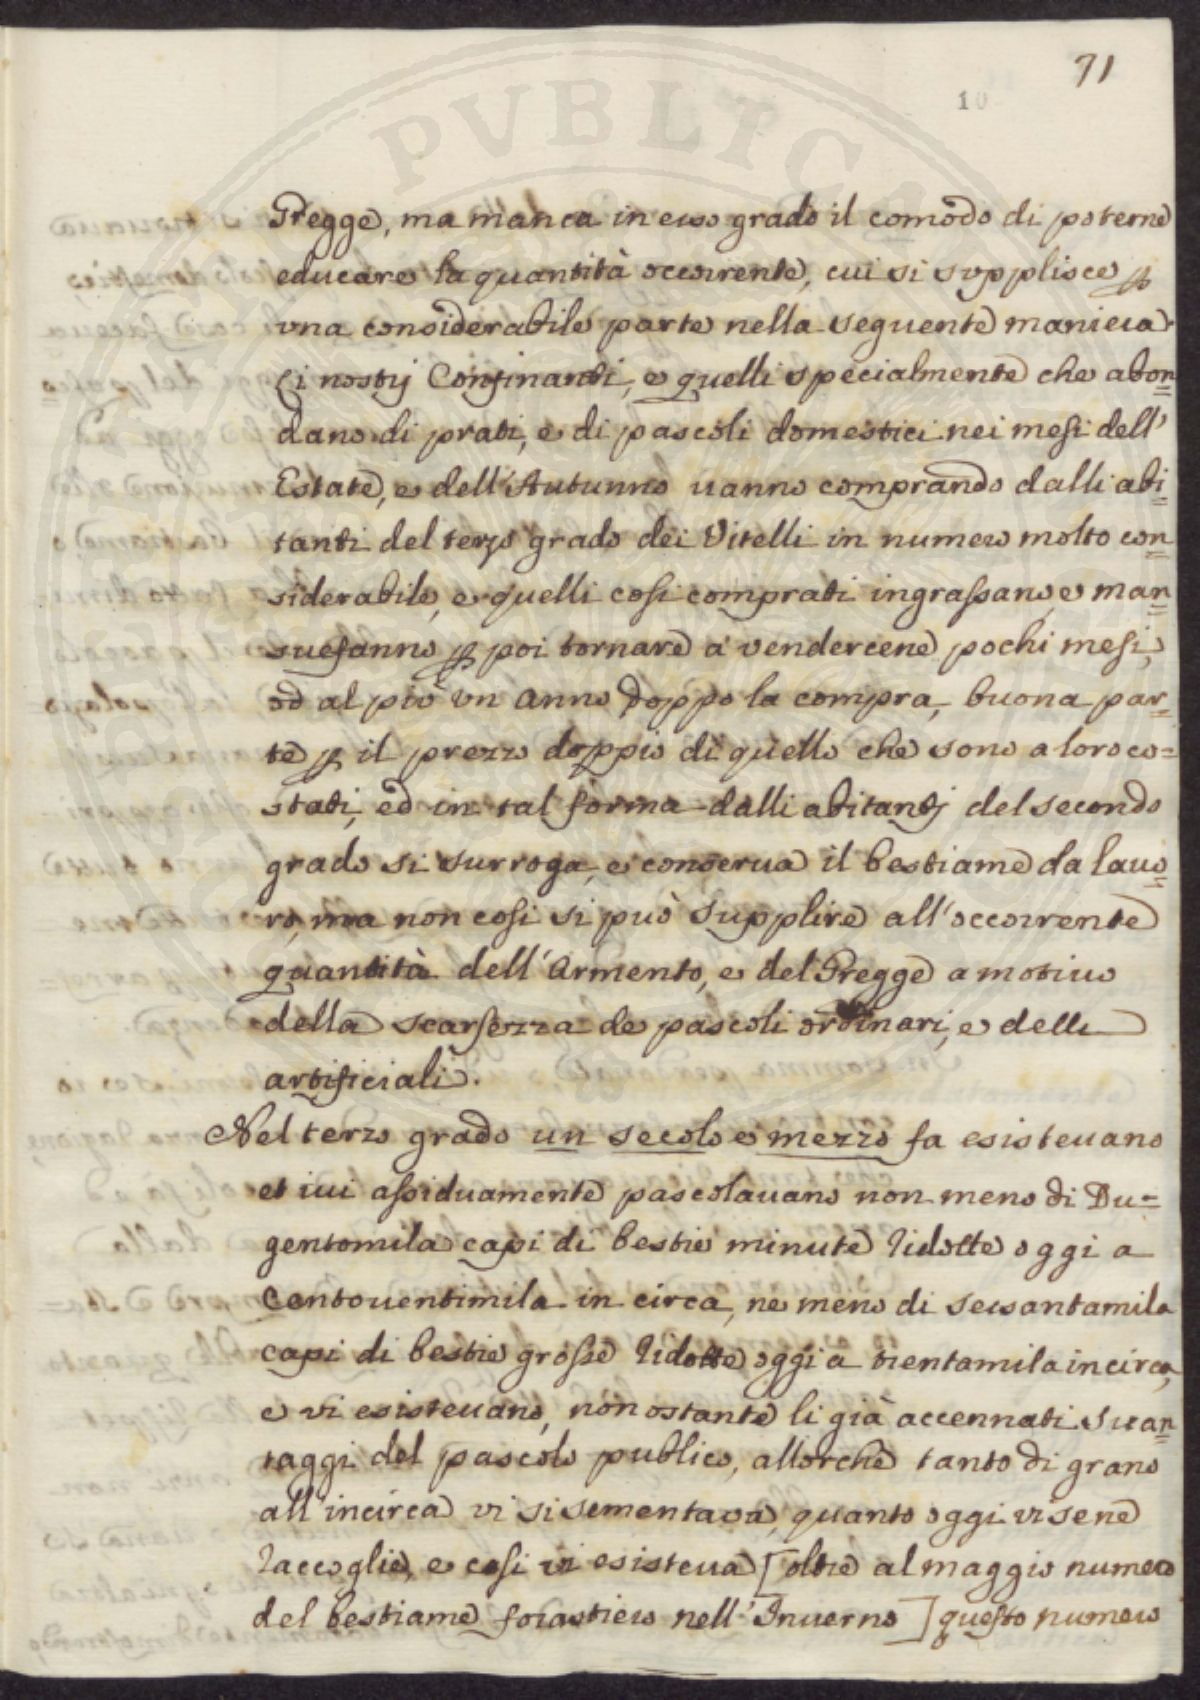 71
10
Gregge, ma manca in esso grado il comodo di poterne
educare la quantità occorrente, cui si supplisce ꝑ
una considerabile parte nella seguente maniera.
(i nostrj Confinanti, e quelli specialmente che abon=
dano di prati, e di pascoli domestici nei mesi dell'
Estate, e dell'Autunno vanno comprando dalli abi=
tanti del terzo grado dei Vitelli in numero molto con=
siderabile, e quelli cosi comprati ingrassano, e man=
suefanno ꝑ poi tornare à vendercene pochi mesi,
od al più vn anno doppo la compra, buona par=
te ꝑ il prezzo doppio di quello che sono a loro co=
stati, ed in tal forma dalli abitantj del secondo
grado si surroga, e conserva il bestiame da lavo=
ro, ma non cosi si può supplire all'occorrente
quantità dell'Armento, e del Gregge a motivo
della scarsezza de pascoli ordinari, e delli
artificiali.
Nel terzo grado un secolo e mezzo fa esistevano
et ivi assiduamente pascolavano non meno di Du=
gentomila capi di bestie minute ridotte oggi a
Centoventimila in circa, ne meno di sessantamila
capi di bestie grosse ridotte oggi a trentamila incirca,
e vi esistevano, non ostante li già accennati svan=
taggi del pascolo publico, allorche tanto di grano
all'incirca vi si sementava, quanto oggi vi se ne
raccoglie, e cosi vi esisteva [oltre al maggio numero
del bestiame forastiero nell'Inverno] questo numero
PVBLICA